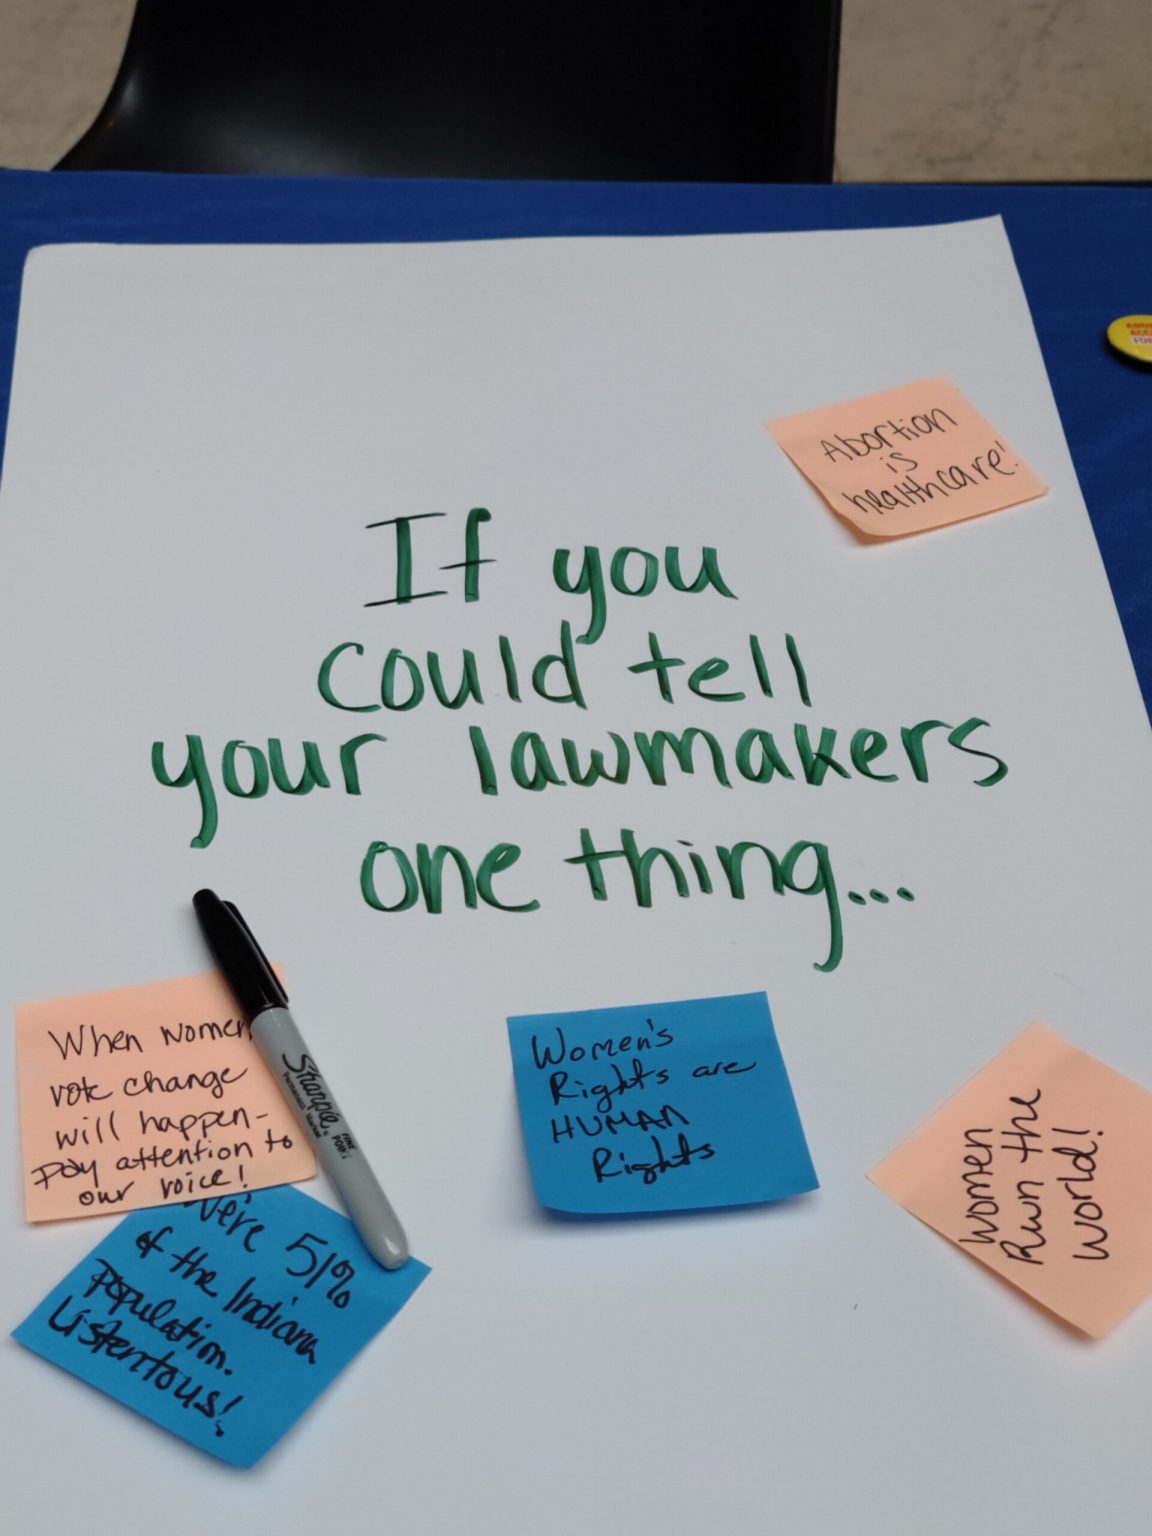 ABOR
ACC
FOR
Abortion
is
healthcare!
If you
could tell
your lawmakers
one thing...
When women
vote change
will happen-
Pay attention to
our voice!
Sharpie
PERMANENT MARKER
FINE
POINT
We're 51%
of the Indiana
Population.
Listen to us!
Women's
Rights are
HUMAN
Rights
Women
Run the
World!